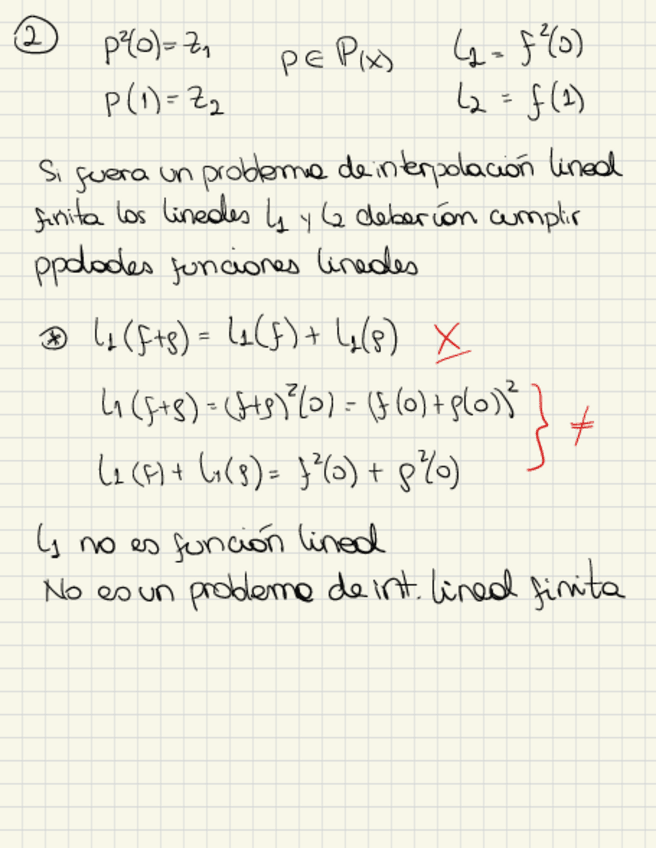 2 p²(0) = z₁ p ∈ P(x) L₁ = f²(0)
p(1) = z₂ L₂ = f(1)
Si fuera un problema de interpolación lineal
finita los lineales L₁ y L₂ deberían cumplir
ppdades funciones lineales
* L₁(f+g) = L₁(f) + L₁(g) X
L₁(f+g) = (f+g)²(0) = (f(0)+g(0))²
L₁(f) + L₁(g) = f²(0) + g²(0) } ≠
L₁ no es función lineal
No es un problema de int. lineal finita